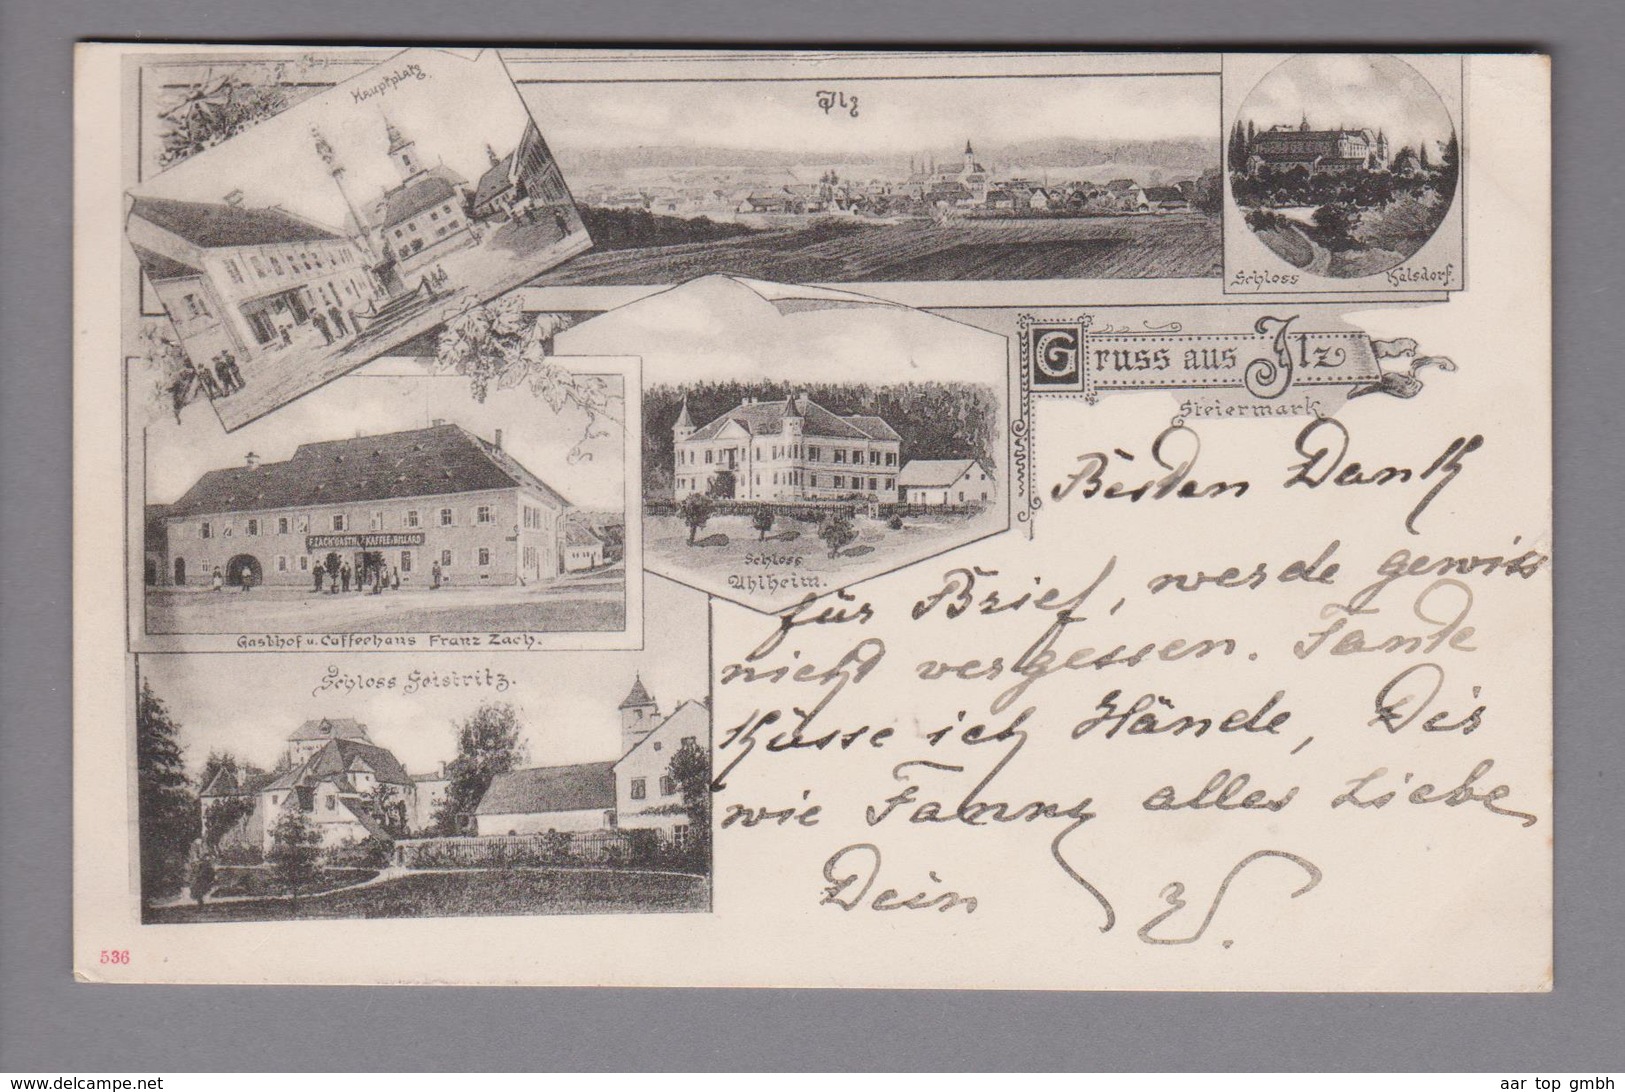 Hauptplatz
Ilz
Schloss Kalsdorf.
Gruss aus Ilz
Steiermark.
F. ZACH GASTH. KAFFE u. BILLARD
Gasthof u. Caffeehaus Franz Zach.
Schloss
Uhlheim.
Schloss Feistritz.
Besten Dank
für Brief, werde gewiss
nicht vergessen. Tante
Küsse ich Hände, Dir
wie Fanny alles Liebe
Dein
W.
536
www.delcampe.net
aar top gmbh